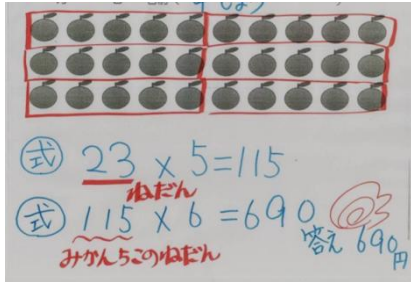 式 23×5=115
ねだん
式 115×6=690
みかん5このねだん
答え 690円